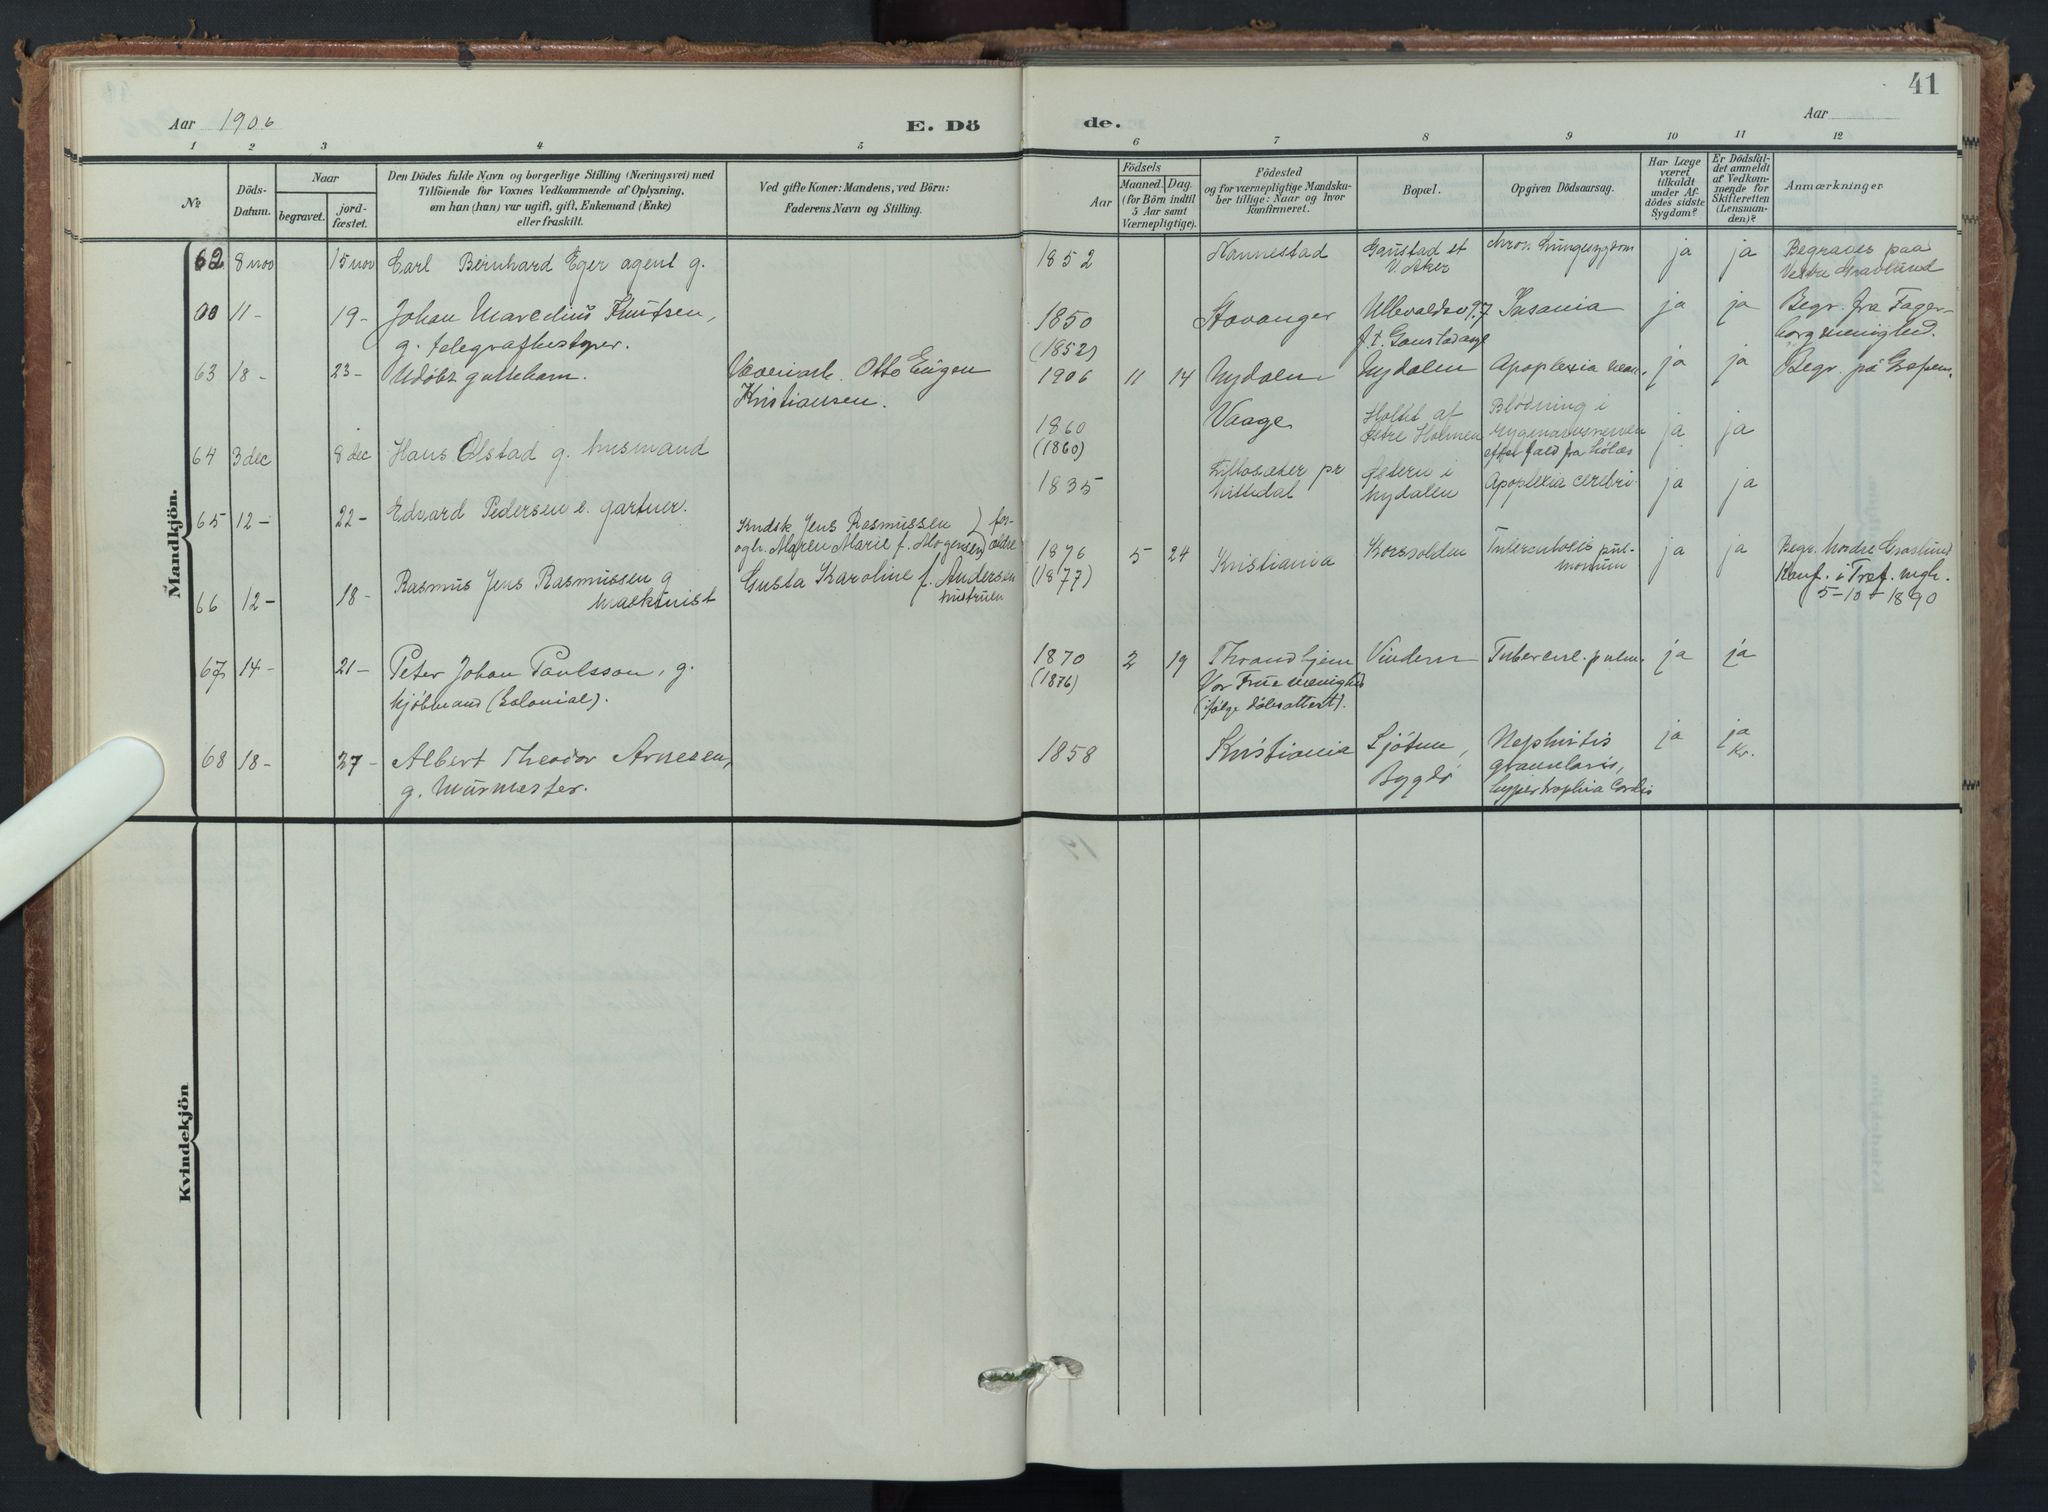 41
Aar 1906
E. Dö
de.
Aar
1 2 3 4 5 6 7 8 9 10 11 12
No
Döds-
Datum.
Naar
begravet.
jord-
fæstet.
Den Dödes fulde Navn og borgerlige Stilling (Næringsvei) med
Tilföiende for Voxnes Vedkommende af Oplysning,
om han (hun) var ugift, gift, Enkemand (Enke)
eller fraskilt.
Ved gifte Koner: Mandens, ved Börn:
Faderens Navn og Stilling.
Aar
Födsels
Maaned.
Dag.
(for Börn indtil
5 Aar samt
Værnepligtige).
Födested
og for værnepligtige Mandska-
ber tillige: Naar og hvor
konfirmeret.
Bopæl.
Opgiven Dödsaarsag.
Har Læge
været
tilkaldt
under Af-
dödes sidste
Sygdom?
Er Dödsfal-
det anmeldt
af Vedkom-
mende for
Skifteretten
(Lensman-
den)?
Anmærkninger
Mandkjön.
62 8 nov 15 nov Carl Bernhard Eger agent g.
1852 Nannestad Gaustad st
V. Aker
chron. Lungesygdom
ja ja
Begraves paa
Vestre Gravlund
00 11- 19- Johan Marcelius Knutsen,
g. telegrafbestyrer.
1850
(1852)
Stavanger
Ullevoldsv 97
f. t. Gaustad asyl
Insania
ja ja
Begr. fra Fager-
borg menighed.
63 18- 23- Udöbt guttebarn.
Otto Eugen
Kristiansen.
1906 11 14 Nydalen Nydalen Apoplexia neon. ja ja Begr. på
64 3 dec 8 dec Hans Olstad g. husmand
1860
(1860)
Vaage
af
Østre Holmen
Blödning i
efter fald fra
ja ja
65 12- 22- Edvard Pedersen e. gartner.
1835
pr
Nittedal
i
Nydalen
Apoplexia cerebri
ja ja
66 12- 18- Rasmus Jens Rasmussen g
maskinist
Kudsk Jens Rasmussen } for-
og h. Maren Marie f. Mogensen } ældre
Gusta Karoline f. Andersen
hustruen
1876
(1877)
5 24 Kristiania Korsvolden
Tuberculosis pul-
monum
ja ja
Begr. Nordre Gravlund
Konf. i Tref. mgh.
5-10-1890
67 14- 21- Peter Johan Paulsson, g.
kjöbmand (kolonial).
1870
(1876)
2 19 Throndhjem
Vor Frue menighed
(ifölge dåbsattest).
Vindern Tubercul. pulm. ja ja
68 18- 27- Albert Theodor Arnesen,
g. murmester.
1858 Kristiania
Sjötun,
Bygdö
Nephritis
granularis,
hypertrophia Cordis
ja ja
Kr.
Kvindekjön